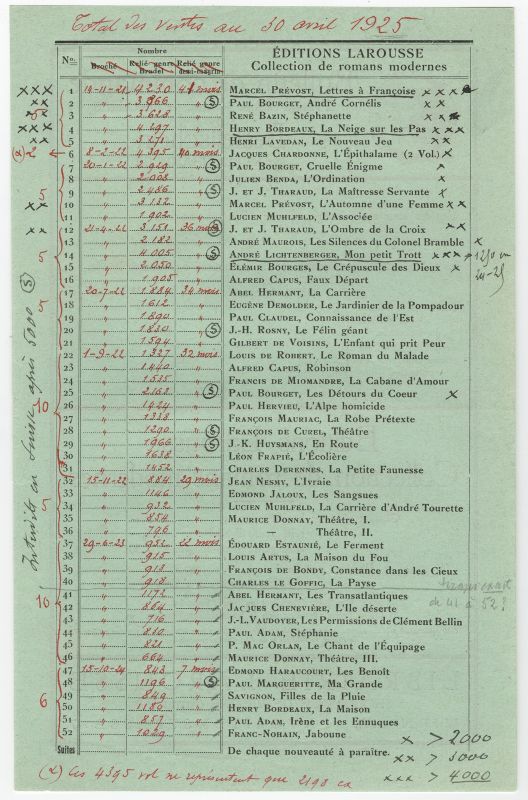 Total des ventes au 30 avril 1925
Nombre
ÉDITIONS LAROUSSE
Nos. Broché Relié genre Bradel Relié genre demi-maroquin Collection de romans modernes
xxx 1 19-11-21 4230 41 mois MARCEL PRÉVOST, Lettres à Françoise xxx
xx 2 " 3066 " (S) PAUL BOURGET, André Cornélis xx
3 " 3628 " RENÉ BAZIN, Stéphanette xx
xxx 4 " 4297 " HENRY BORDEAUX, La Neige sur les Pas xxx
xx 5 " 3271 " HENRI LAVEDAN, Le Nouveau Jeu xx
(α) 2 6 8-2-22 4395 40 mois JACQUES CHARDONNE, L'Épithalame (2 Vol.) x
7 20-1-22 2029 " (S) PAUL BOURGET, Cruelle Énigme x
8 " 2008 " JULIEN BENDA, L'Ordination x
5 9 " 2486 " (S) J. ET J. THARAUD, La Maîtresse Servante x
xx 10 " 3132 " MARCEL PRÉVOST, L'Automne d'une Femme xx
11 " 1902 " LUCIEN MUHLFELD, L'Associée
xx 12 21-4-22 3151 36 mois (S) J. ET J. THARAUD, L'Ombre de la Croix xx
13 " 2182 " ANDRÉ MAUROIS, Les Silences du Colonel Bramble x
5 14 " 4005 " (S) ANDRÉ LICHTENBERGER, Mon petit Trott xxx
15 " 2050 " ÉLÉMIR BOURGES, Le Crépuscule des Dieux x
16 " 1905 " ALFRED CAPUS, Faux Départ
17 20-7-22 1884 34 mois ABEL HERMANT, La Carrière
18 " 1612 " EUGÈNE DEMOLDER, Le Jardinier de la Pompadour
5 19 " 1890 " PAUL CLAUDEL, Connaissance de l'Est
20 " 1830 " (S) J.-H. ROSNY, Le Félin géant
21 " 1594 " GILBERT DE VOISINS, L'Enfant qui prit Peur
22 1-9-22 1327 32 mois LOUIS DE ROBERT, Le Roman du Malade
23 " 1440 " ALFRED CAPUS, Robinson
24 " 1535 " FRANCIS DE MIOMANDRE, La Cabane d'Amour
25 " 2162 " (S) PAUL BOURGET, Les Détours du Coeur x
10 26 " 1424 " PAUL HERVIEU, L'Alpe homicide
27 " 1338 " FRANÇOIS MAURIAC, La Robe Prétexte
28 " 1290 " (S) FRANÇOIS DE CUREL, Théâtre
29 " 1966 " (S) J.-K. HUYSMANS, En Route
30 " 1638 " LÉON FRAPIÉ, L'Écolière
31 " 1452 " CHARLES DERENNES, La Petite Faunesse
32 15-11-22 884 29 mois JEAN NESMY, L'Ivraie
33 " 1146 " EDMOND JALOUX, Les Sangsues
5 34 " 932 " LUCIEN MUHLFELD, La Carrière d'André Tourette
35 " 854 " MAURICE DONNAY, Théâtre, I.
36 " 796 " — Théâtre, II.
37 29-6-23 952 22 mois ÉDOUARD ESTAUNIÉ, Le Ferment
38 " 915 " LOUIS ARTUS, La Maison du Fou
39 " 913 " FRANÇOIS DE BONDY, Constance dans les Cieux
40 " 918 " CHARLES LE GOFFIC, La Payse
41 " 1172 " ABEL HERMANT, Les Transatlantiques
10 42 " 884 " JACQUES CHENEVIÈRE, L'Ile déserte de 41 à 52?
43 " 716 " J.-L. VAUDOYER, Les Permissions de Clément Bellin
44 " 810 " PAUL ADAM, Stéphanie
45 " 821 " P. MAC ORLAN, Le Chant de l'Équipage
46 " 664 " MAURICE DONNAY, Théâtre, III.
47 15-10-24 843 7 mois EDMOND HARAUCOURT, Les Benoît
48 " 1196 " (S) PAUL MARGUERITTE, Ma Grande
6 49 " 849 " SAVIGNON, Filles de la Pluie
50 " 1180 " HENRY BORDEAUX, La Maison
51 " 857 " PAUL ADAM, Irène et les Eunuques
52 " 1029 " FRANC-NOHAIN, Jaboune
x > 2000
Suites De chaque nouveauté à paraître.
xx > 3000
xxx > 4000
(α) Ces 4395 vol ne représentent que 2198 ex
Interdits en Suisse après 5000 (S)